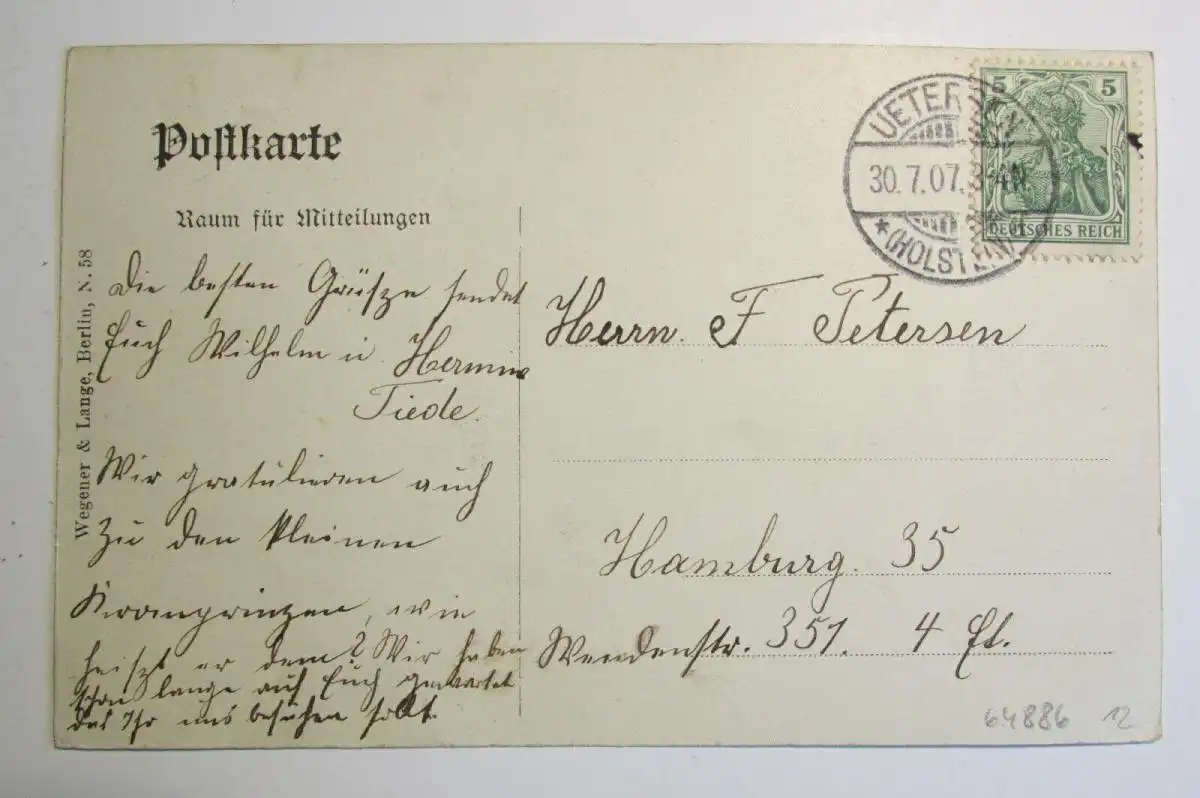 Postkarte
Raum für Mitteilungen
Wegener & Lange, Berlin, N. 58
Die besten Grüsze sendet
Euch Wilhelm u. Hermine
Tiede.
Wir gratulieren auch
zu den kleinen
Kronprinzen, wie
heiszt er denn? Wir haben
schon lange auf Euch gewartet
das Ihr uns besuchen sollt.
UETERSEN
30.7.07. 3-4N
*(HOLSTEIN)
5 5
DEUTSCHES REICH
Herrn. F Petersen
Hamburg. 35
Wendenstr. 351. 4 Et.
64886 12